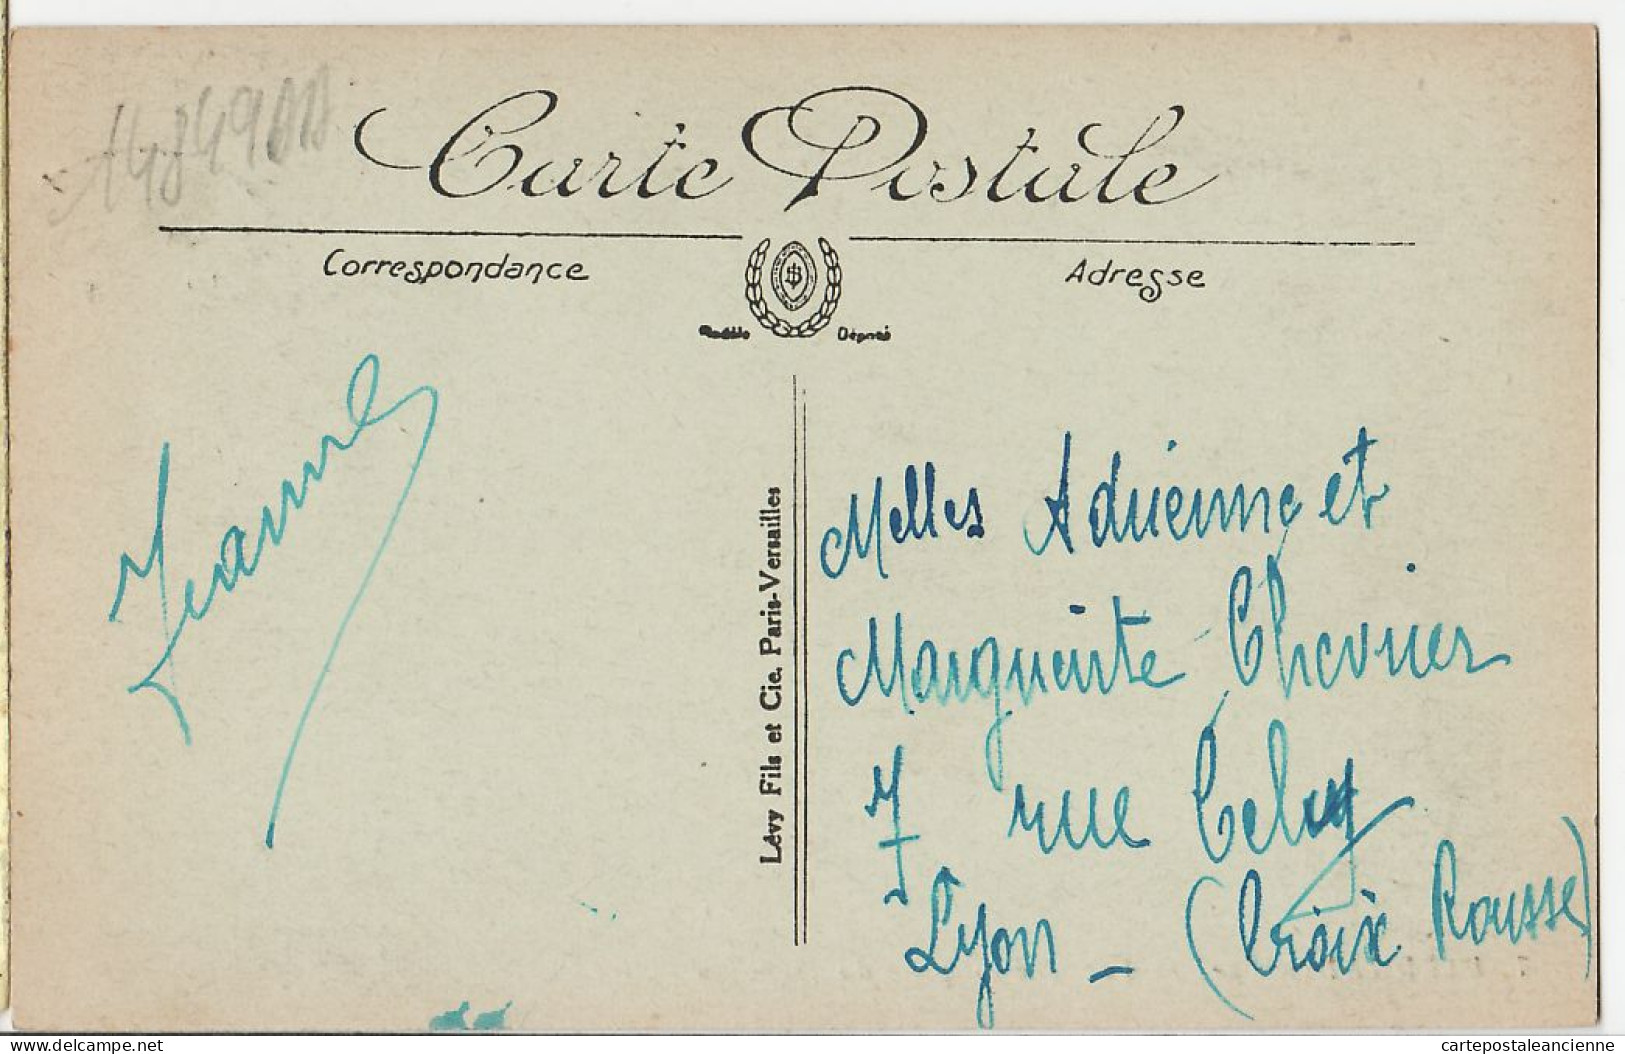 Carte Postale
Correspondance
Adresse
Déposé
Jeanne
Lévy Fils et Cie. Paris-Versailles
Melles Adrienne et
Marguerite Chevrier
7 rue
Lyon - (Croix Rousse)
delcampe.net
cartepostaleancienne